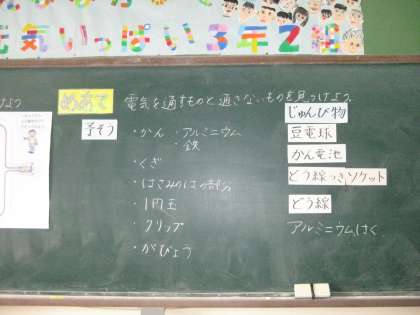 元気いっぱい3年2組
めあて 電気を通すものと通さないものを見つけよう。
予そう
・かん ・アルミニウム
・鉄
・くぎ
・はさみのはの部分
・1円玉
・クリップ
・がびょう
じゅんび物
豆電球
かん電池
どう線つきソケット
どう線
アルミニウムはく